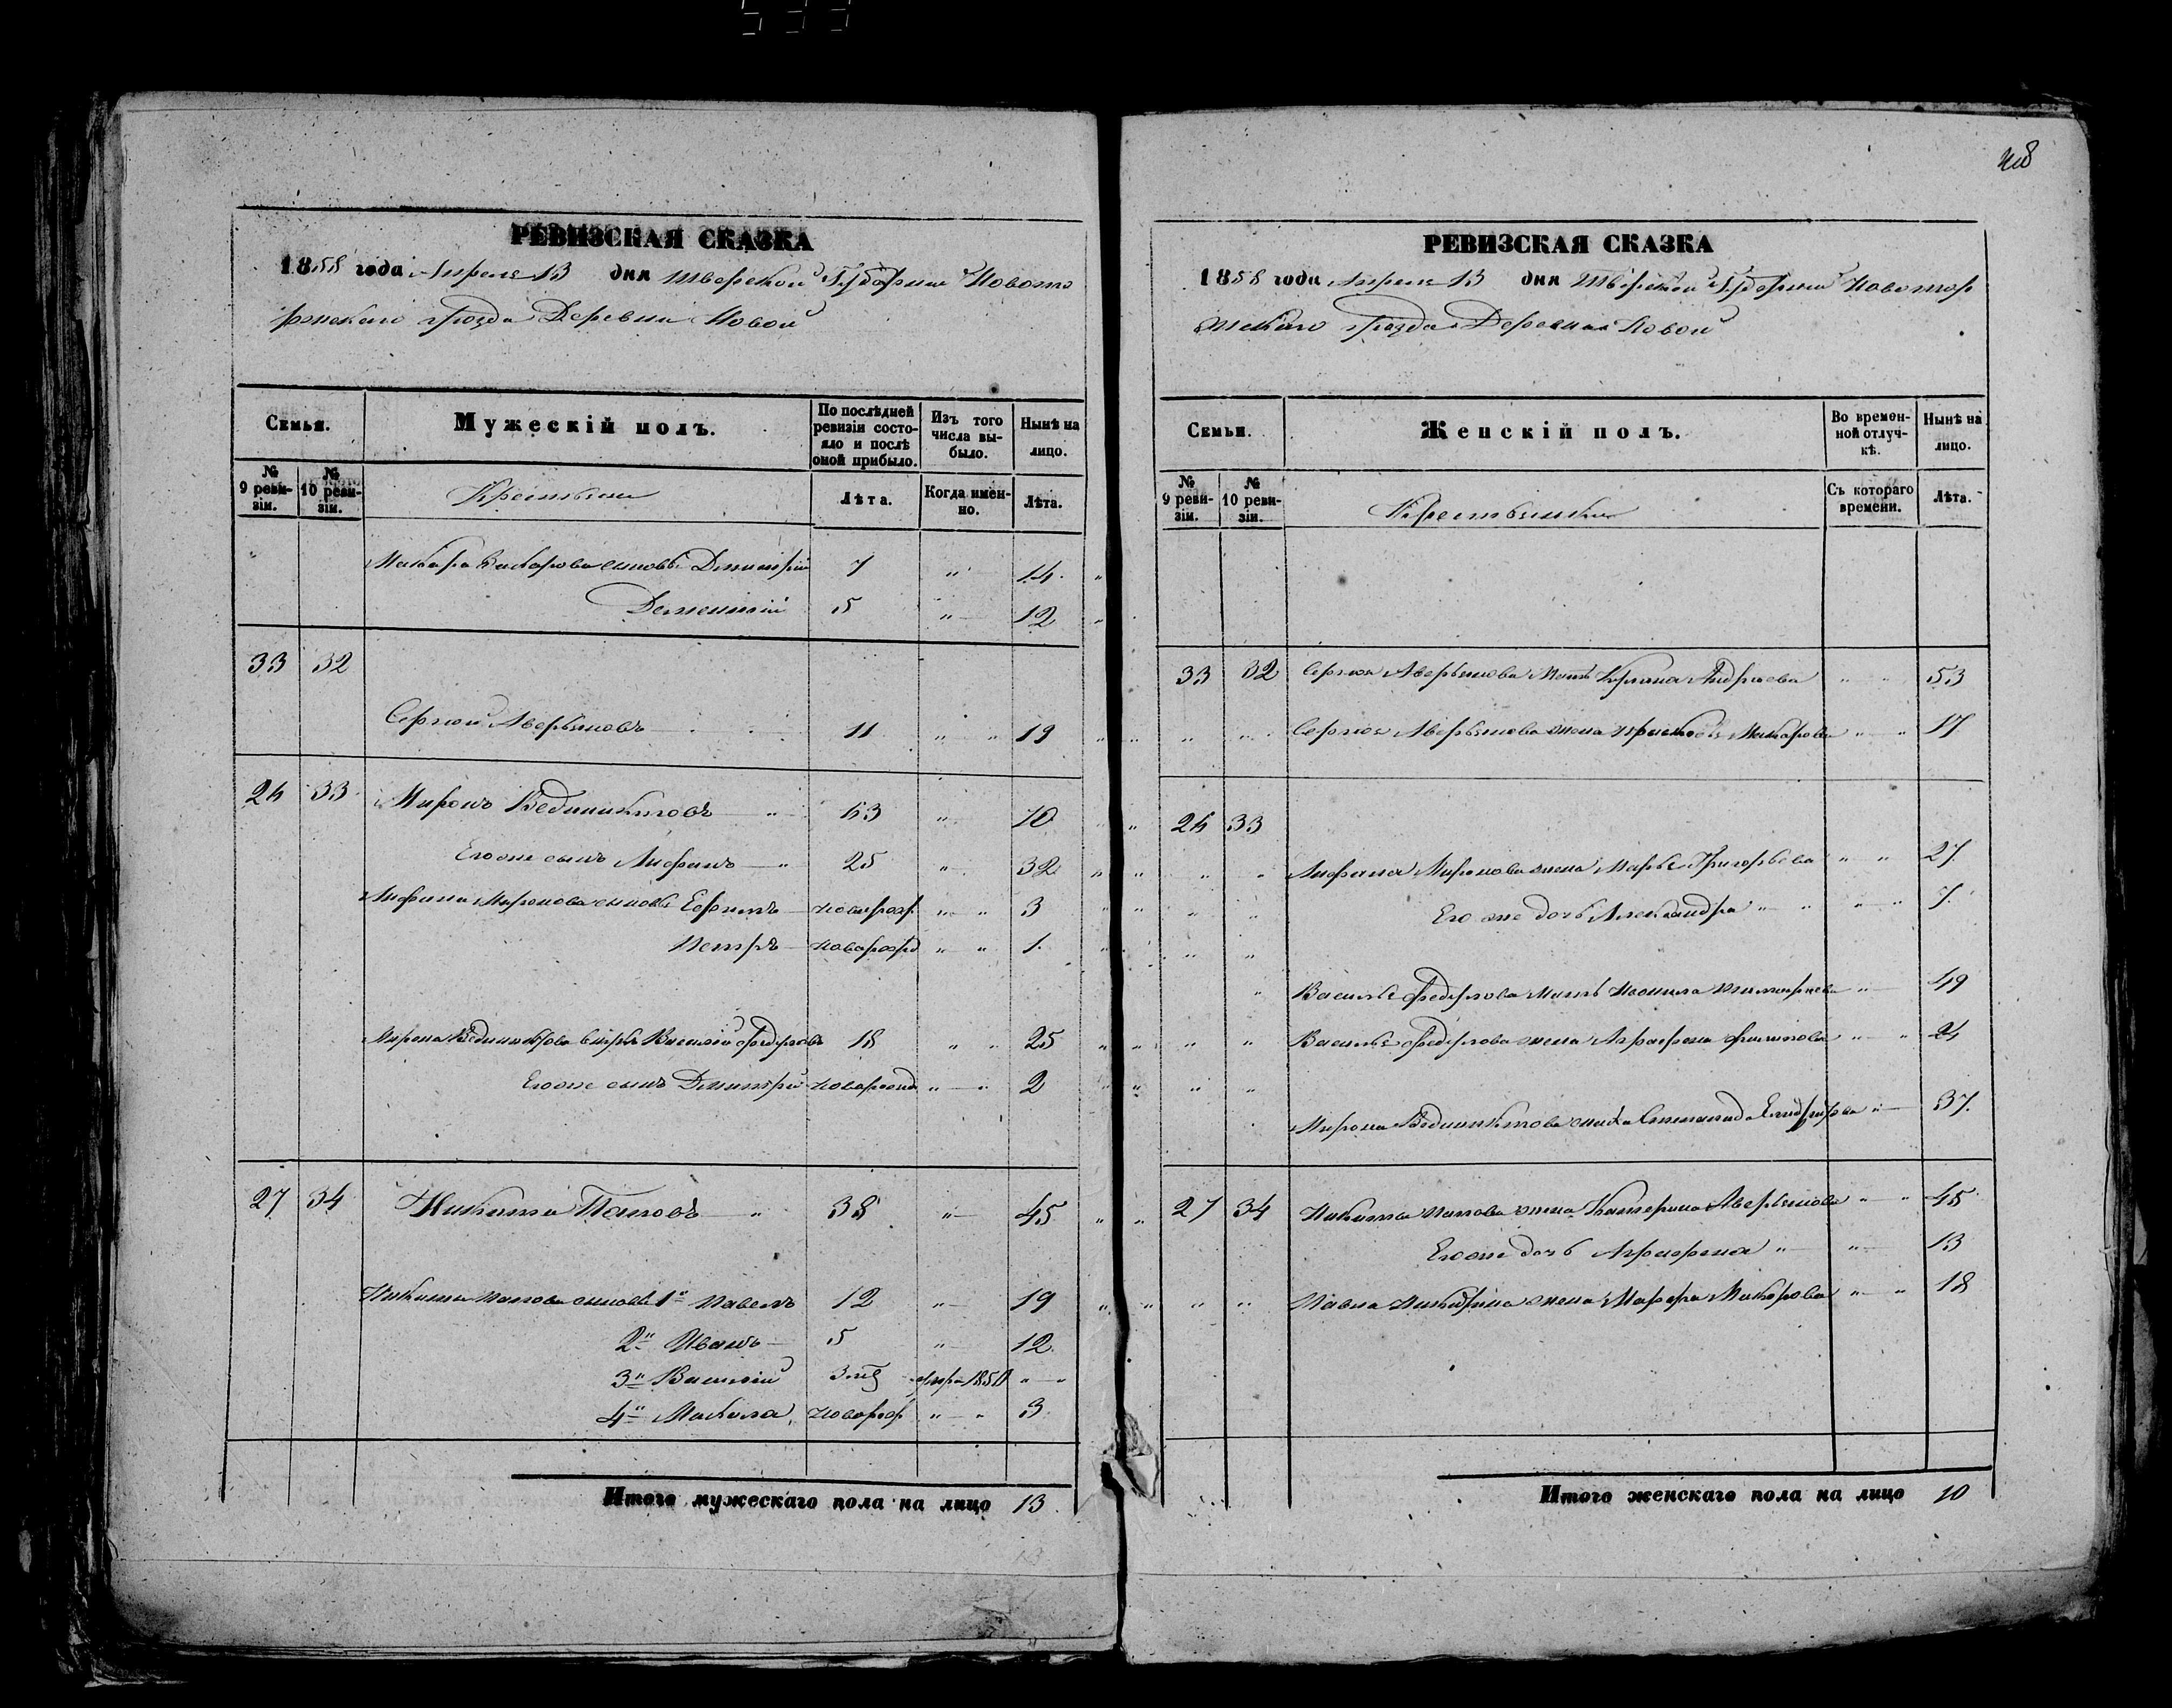 408
РЕВИЗСКАЯ СКАЗКА
1858 года Апреля 13 дня Тверской Губернии Новото
ржскаго уѣзда Деревни Новой
Семьи.
Мужескій полъ.
По послѣдней ревизіи состояло и послѣ оной прибыло.
Изъ того числа выбыло.
Нынѣ на лицо.
№ 9 ревизіи.
№ 10 ревизіи.
Крестьяне
Лѣта.
Когда именно.
Лѣта.
Макара сыновья Дмитрій 7 " 14
Дементій 5 " 12
33 32
Сергей Аверьяновъ 11 " " 19
26 33 Миронъ Ведениктовъ " 63 " 70
Его же сынъ Анфимъ " 25 " 32
Миронова сыновья Ефимъ новорож " " 3
Петръ новорожд " " 1
Мирона Василій Федоровъ 18 " " 25
Его же сынъ Дмитрій новорожд " " 2
27 34 Никита Паповъ " 38 " 45
Никиты Папова сыновья 1й Павелъ 12 " 19
2й Иванъ 5 " 12
3й Василій 3 1850 " "
4й новорож " " 3
Итого мужескаго пола на лицо 13
РЕВИЗСКАЯ СКАЗКА
1858 года Апреля 13 дня Тверской Губерніи Новотор
жскаго уѣзда Деревни Новой
Семьи.
Женскій полъ.
Во временной отлучкѣ.
Нынѣ на лицо.
№ 9 ревизіи.
№ 10 ревизіи.
Крестьянки
Съ котораго времени.
Лѣта.
33 32 Сергея Аверьянова Мать Андреева " " 53
" " Сергея Аверьянова жена Макарова " " 17
26 33
" " Миронова жена Марья Григорьева " " 27
" " Его же дочь Александра " " " " 7
" Василья Федорова Мать " 49
" " Василья Федорова жена Аграфена " " 24
Мирона Ведениктова 37
27 34 Никиты Папова жена Катерина Аверьянова " " 45
Его же дочь Аграфена " " 13
" " Павла Никитина жена Марфа Макарова " " 18
Итого женскаго пола на лицо 10